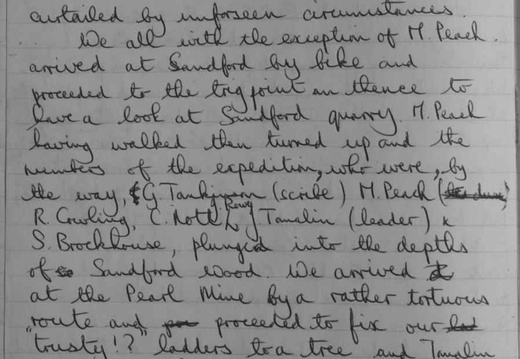 curtailed by unforseen circumstances.
We all with the exception of M. Peach
arrived at Sandford by bike and
proceeded to the trig point an thence to
have a look at Sandford quarry. M. Peach
having walked then turned up and the
members of the expedition, who were, by
the way, G. Tankinson (scribe) M. Peach
R. Cowling, C. Nott J Tamalin (leader) &
S. Brockhouse, plunged into the depths
of Sandford wood. We arrived
at the Pearl Mine by a rather tortuous
route and proceeded to fix our
"trusty!?" ladders to a tree and Tamalin